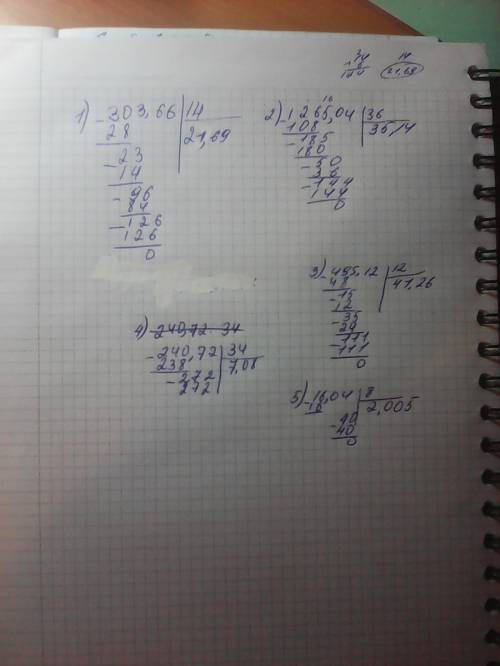 34
14
144
21,69
1) - 303,66 | 14
28
21,69
- 23
14
- 96
84
- 126
126
0
16
2) - 1265,04 | 36
108
35,14
- 185
180
- 50
36
- 144
144
0
3) - 495,12 | 12
48
41,26
- 15
12
- 35
24
- 111
- 111
0
4) 240,72 34
- 240,72 | 34
238
7,08
- 272
272
5) - 16,04 | 8
16
2,005
- 40
40
0